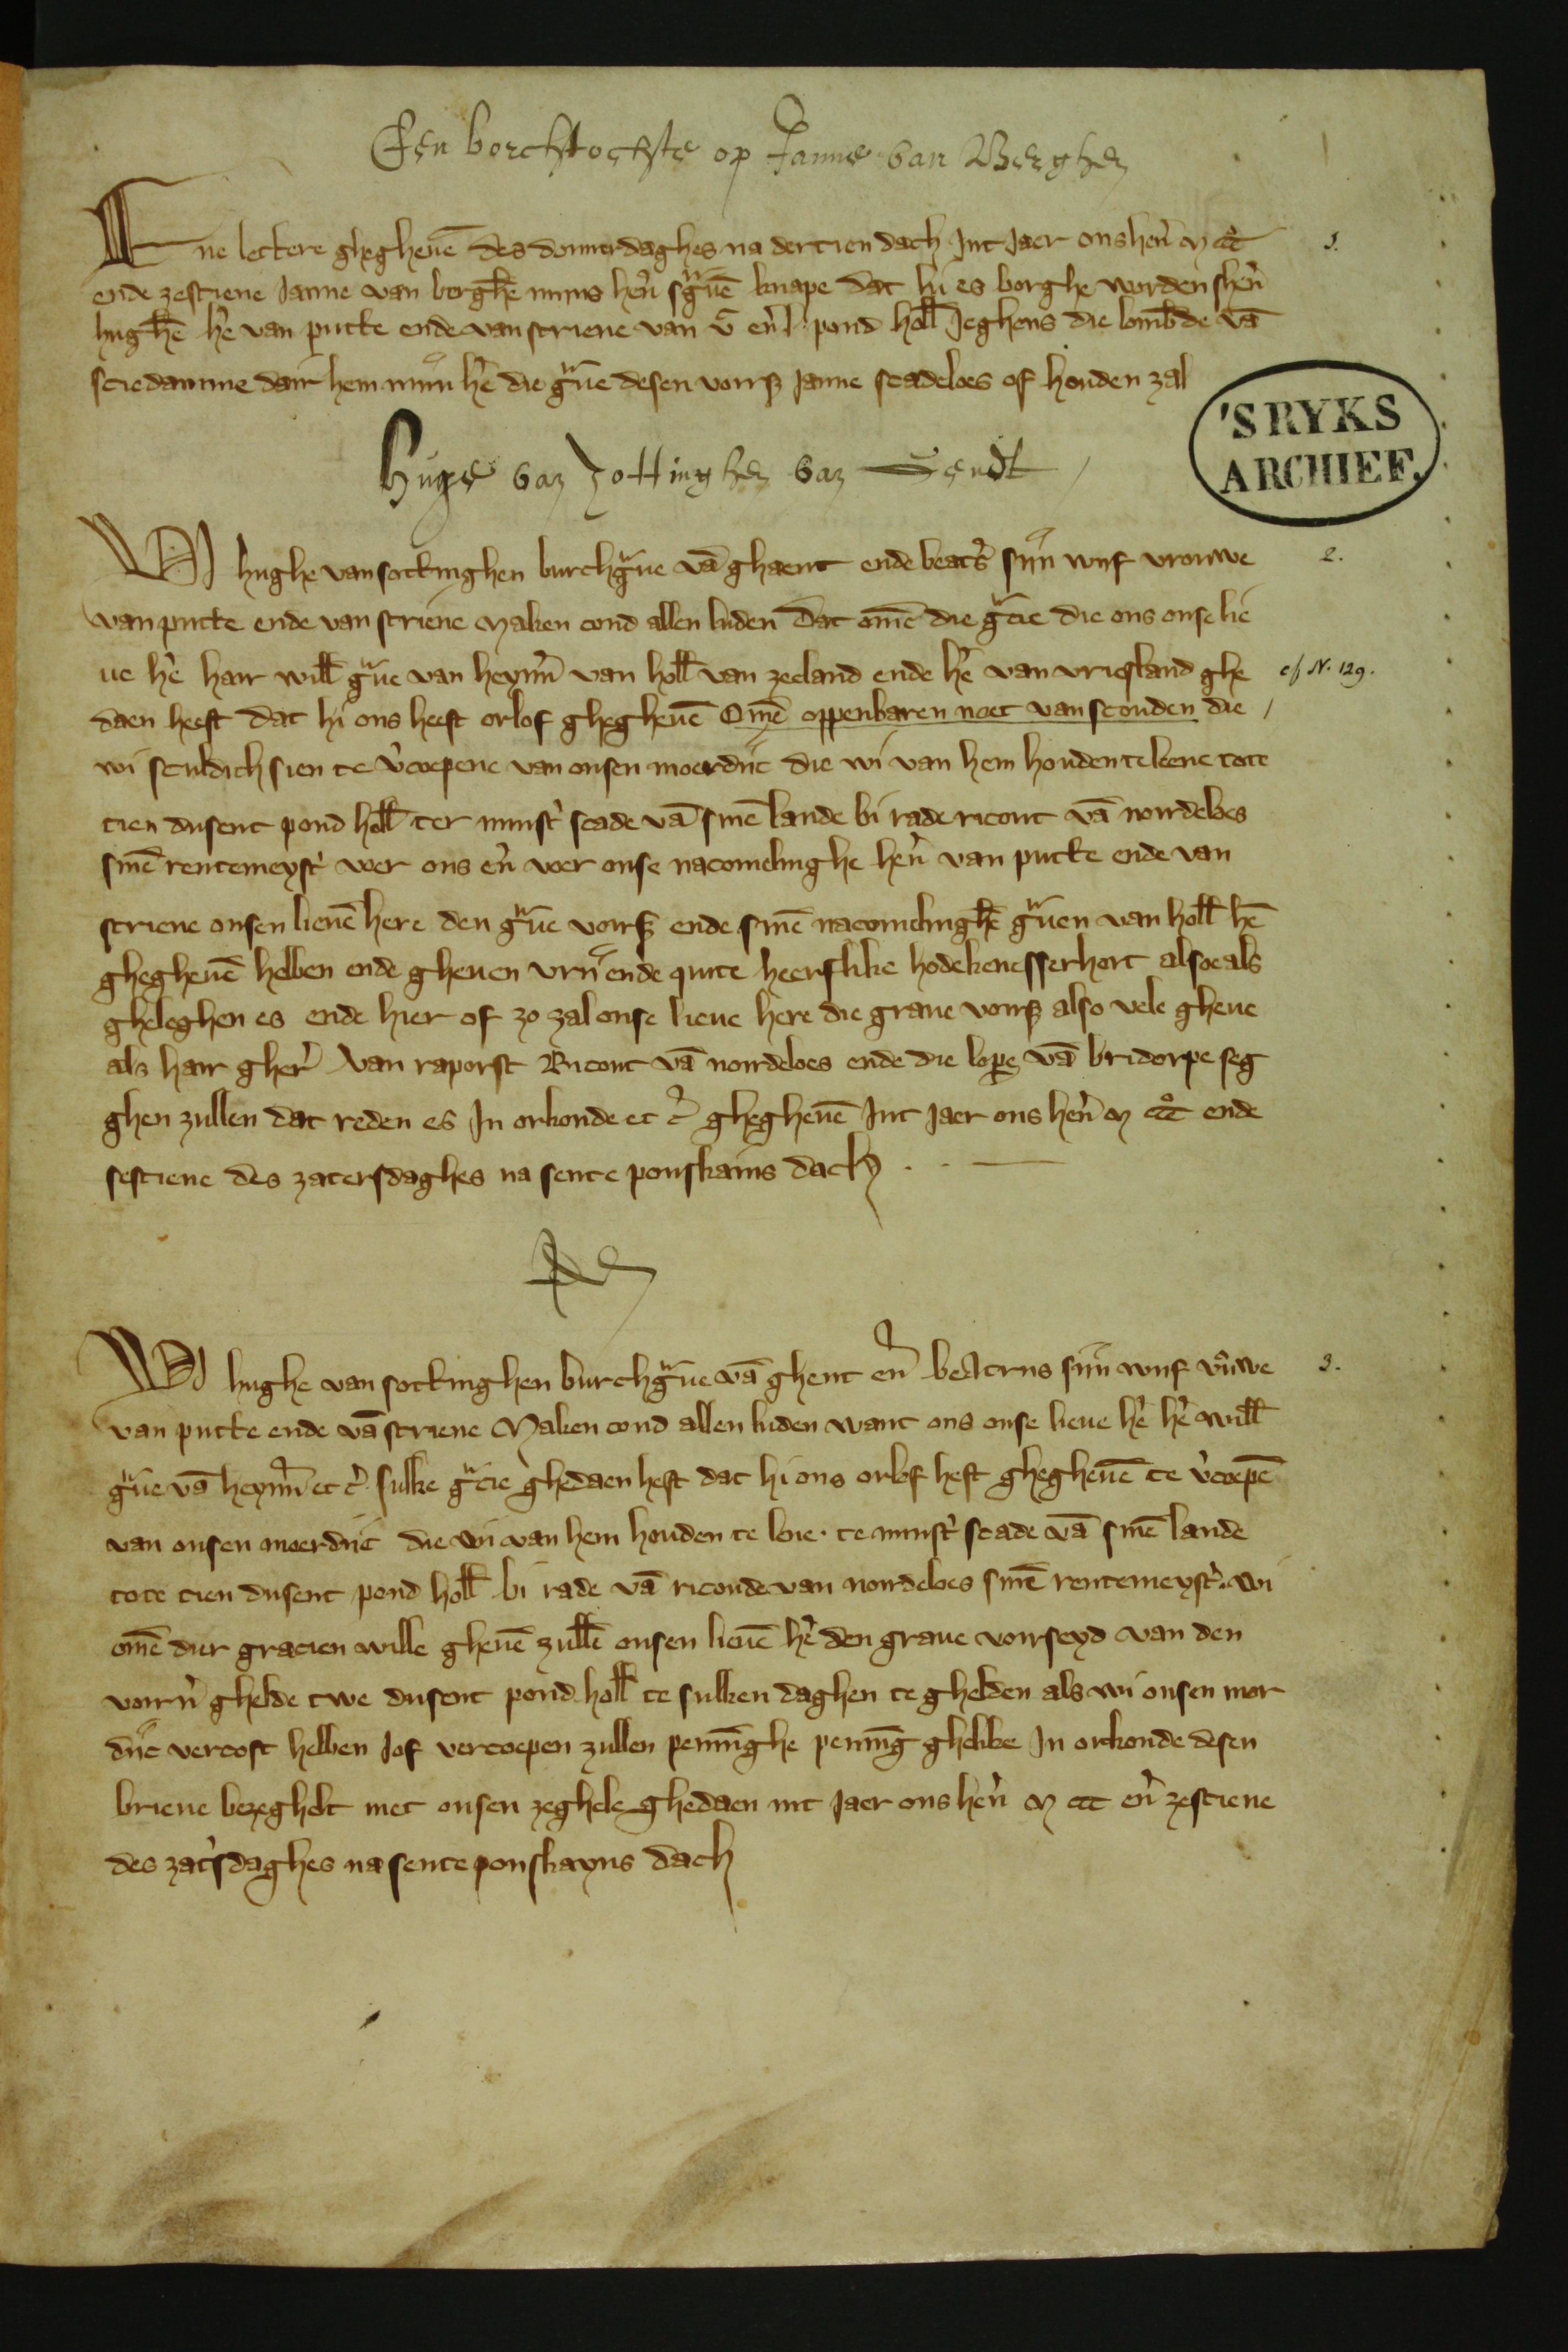 Een borchtochte op Janne van Berghen
Ene lettere ghegheuē des donnerdaghes na dertien dach Jnt Jaer ons heñ M CCC
ende zestiene Janne van berghē mijns heñ sgͣuē knape dat hi es borghe worden sheñ
hughē hè van putte ende van striene van vᶜ eñ l pond holl Jeghens die lombde vā
sciedamme dair hem mijn hè die gͣue desen voirs Janne scadeloes of houden zal
'S RYKS
ARCHIEF.
Huge van Zottinghen van Gendt
Wi hughe van sottinghen burchgͣue vā ghaent ende beatˢ sijn wijf vrouwe
van putte ende van striene Maken cond allen luden dat omē die gͣcie die ons onse lie
ue hè hair will gͣue van heyñ van holl van zeeland ende hè van vriesland ghe
daen heeft dat hi ons heeft orlof ghegheuē Omē oppenbaren noet van sconden die
wi sculdich sien te v̀coepene van onsen moerdijc die wi van hem houden te leene tote
tien dusent pond holl ter minst scade vā sinē lande bi rade ricout vā noirdeloes
sinē rentemeyst voer ons eñ voer onse nacomelinghe heñ van putte ende van
striene onsen lieuē here den gͣue voirs ende sinē nacomelinghē gͣuen van holl hē
ghegheuē hebben ende gheuen vrij ende quite heerslike hodekenesserhort alsoe als
gheleghen es ende hier of zo zal onse lieue here die graue voirs also vele gheue
als hair gher van raporst Ricout vā noirdeloes ende die lope vā bridorpe seg
ghen zullen dat reden es Jn orkonde et c̃ ghegheuē Jnt Jaer ons heñ M CCC ende
sestiene des zatersdaghes na sente ponskains dach
Wi hughe van sottinghen burchgͣue vā ghent eñ beatrijs sijn wijf vͦuwe
van putte ende vā striene Maken cond allen luden want ons onse lieue hè hè will
gͣue vā heyñ et c̃ sulke gͣcie ghedaen heft dat hi ons orlof heft ghegheuē te v̀coepē
van onsen moerdijc die wi van hem houden te lene te minst scade vā sinē lande
tote tien dusent pond holl bi rade vā riconde van noirdeloes sinē rentemeyst. wi
omē dier gracien wille gheuē zullē onsen lieuē hè den graue voirseyd van den
voirñ ghelde twe dusent pond holl te sulken daghen te ghelden als wi onsen moer
dijc vercoft hebben Jof vercoepen zullen penninghe penning ghelike Jn orkonde desen
brieue bezeghelt met onsen zeghele ghedaen int Jaer ons heñ M CCC eñ zestiene
des zatsdaghes na sente ponskayns dach
1.
2.
cf N. 129.
3.